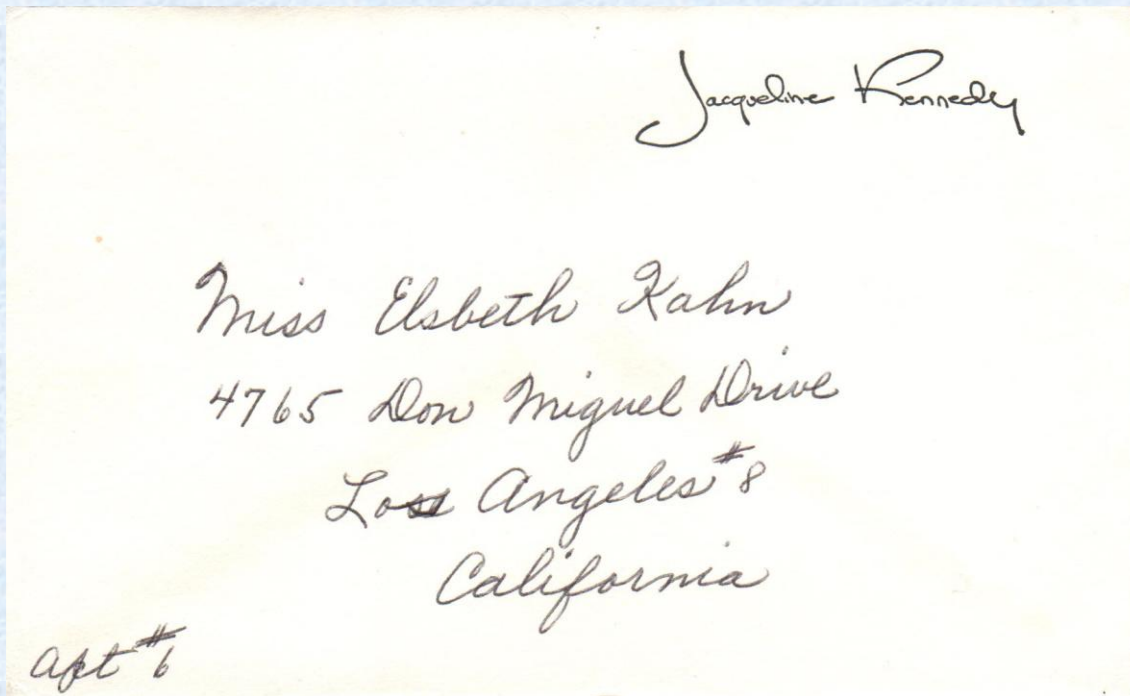 Jacqueline Kennedy
Miss Elsbeth Kahn
4765 Don Miguel Drive
Los Angeles #8
California
Apt #6